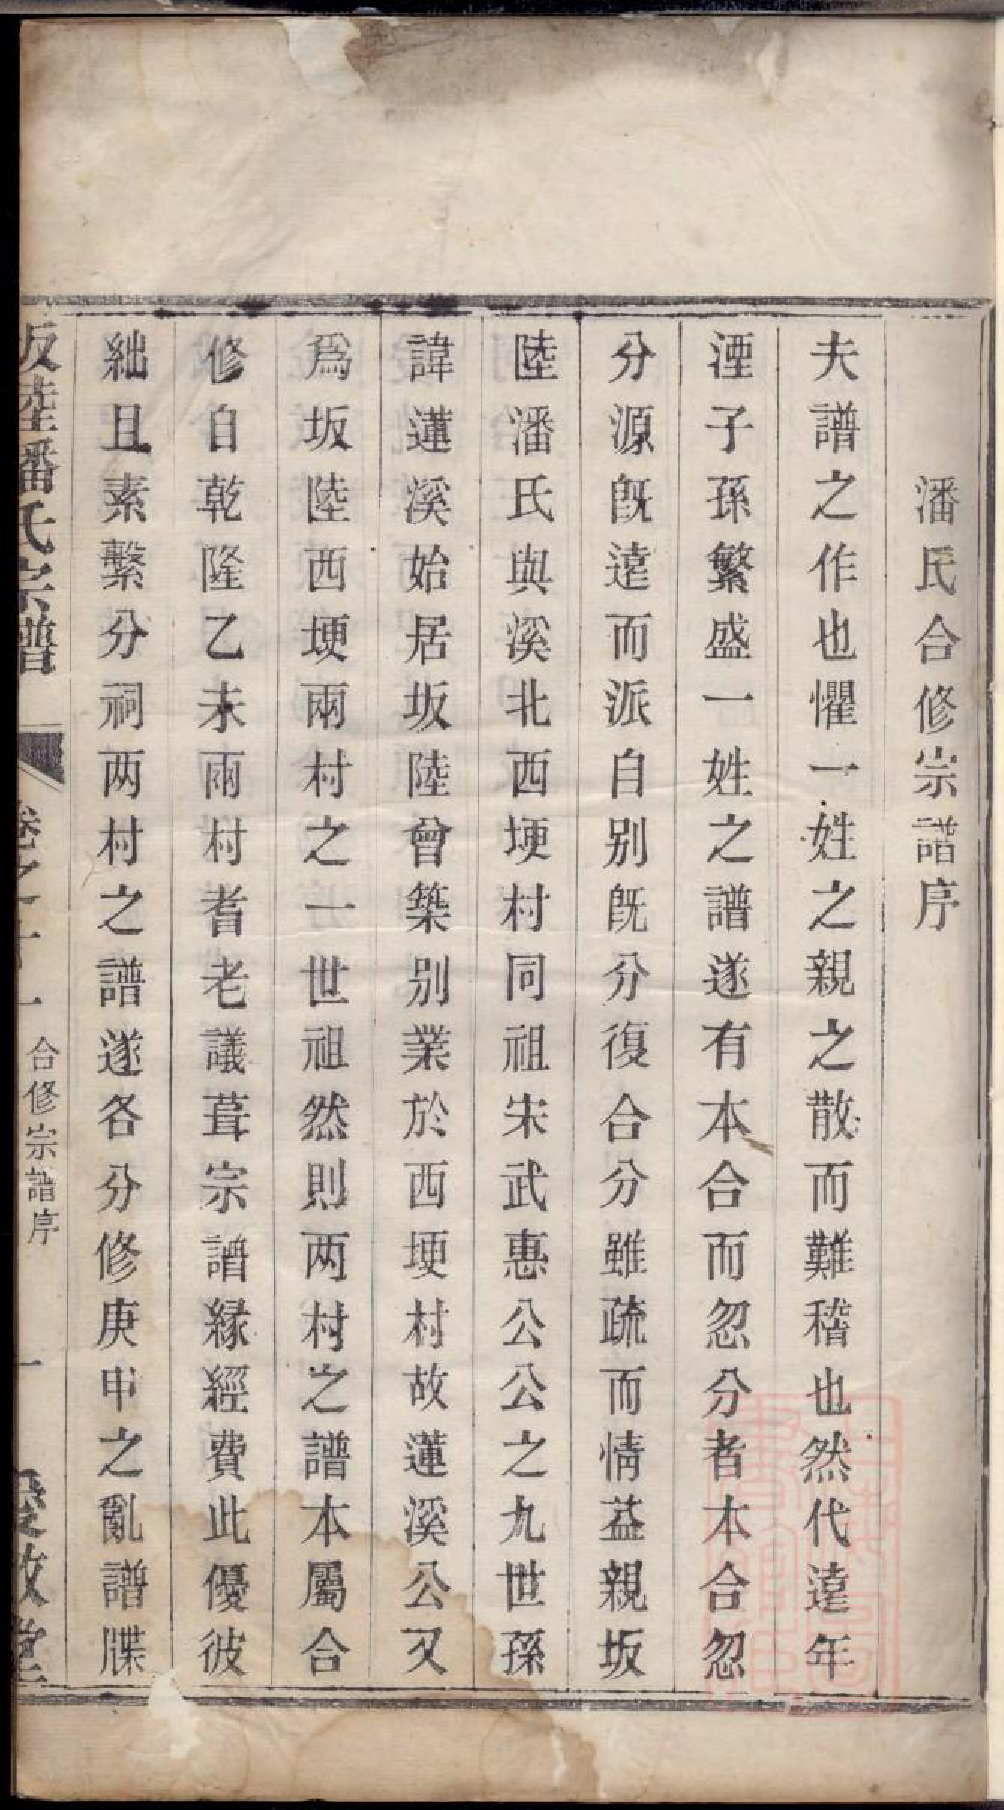 潘氏合修宗譜序
夫譜之作也懼一姓之親之散而難稽也然代遠年
湮子孫繁盛一姓之譜遂有本合而忽分者本合忽
分源旣遠而派自别旣分復合分雖疏而情益親坂
陸潘氏與溪北西埂村同祖宋武惠公公之九世孫
諱蓮溪始居坂陸曾築别業於西埂村故蓮溪公又
爲坂陸西埂兩村之一世祖然則两村之譜本屬合
修自乾隆乙未兩村耆老議葺宗譜緣經費此優彼
絀且素繫分祠两村之譜遂各分修庚申之亂譜牒
坂陸潘氏宗譜
卷之十一
合修宗譜序
一
敦堂